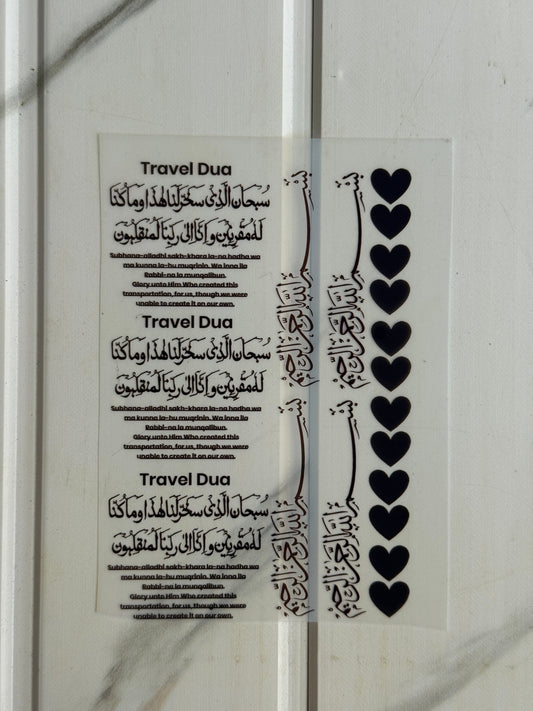 Travel Dua
سُبحَانَ الَّذِىْ سَخَّرَلَنَا هٰذَا وَمَا كُنَّا
لَهٗ مُقْرِنِيْنَ وَ اِنَّا اِلىٰ رَبِّنَا لَمُنْقَلِبُوْن
Subhana-alladhi sakh-khara la-na hadha wa
ma kunna la-hu muqrinin. Wa inna ila
Rabbi-na la munqalibun.
Glory unto Him Who created this
transportation, for us, though we were
unable to create it on our own.
Travel Dua
سُبحَانَ الَّذِىْ سَخَّرَلَنَا هٰذَا وَمَا كُنَّا
لَهٗ مُقْرِنِيْنَ وَ اِنَّا اِلىٰ رَبِّنَا لَمُنْقَلِبُوْن
Subhana-alladhi sakh-khara la-na hadha wa
ma kunna la-hu muqrinin. Wa inna ila
Rabbi-na la munqalibun.
Glory unto Him Who created this
transportation, for us, though we were
unable to create it on our own.
Travel Dua
سُبحَانَ الَّذِىْ سَخَّرَلَنَا هٰذَا وَمَا كُنَّا
لَهٗ مُقْرِنِيْنَ وَ اِنَّا اِلىٰ رَبِّنَا لَمُنْقَلِبُوْن
Subhana-alladhi sakh-khara la-na hadha wa
ma kunna la-hu muqrinin. Wa inna ila
Rabbi-na la munqalibun.
Glory unto Him Who created this
transportation, for us, though we were
unable to create it on our own.
بِسْمِ اللَّهِ الرَّحْمَٰنِ الرَّحِيمِ
بِسْمِ اللَّهِ الرَّحْمَٰنِ الرَّحِيمِ
بِسْمِ اللَّهِ الرَّحْمَٰنِ الرَّحِيمِ
بِسْمِ اللَّهِ الرَّحْمَٰنِ الرَّحِيمِ